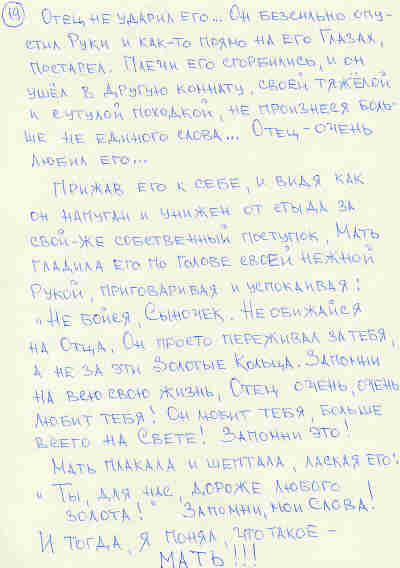 19
Отец не ударил его... Он безсильно опу-
стил Руки и как-то прямо на его Глазах,
постарел. Плечи его сгорбились, и он
ушёл в другую комнату, своей тяжёлой
и сутулой походкой, не произнеся боль-
ше не единого слова... Отец - очень
любил его...
Прижав его к себе, и видя как
он напуган и унижен от стыда за
свой-же собственный поступок, Мать
гладила его по голове своей нежной
Рукой, приговаривая и успокаивая:
"Не бойся, Сыночек. Не обижайся
на Отца. Он просто переживал за тебя,
а не за эти Золотые Кольца. Запомни
на всю свою жизнь, Отец очень, очень
любит тебя! Он любит тебя, больше
всего на Свете! Запомни это!
Мать плакала и шептала, лаская его:
"Ты, для нас, дороже любого
золота!" Запомни, мои Слова!
И тогда, я понял, что такое -
МАТЬ!!!